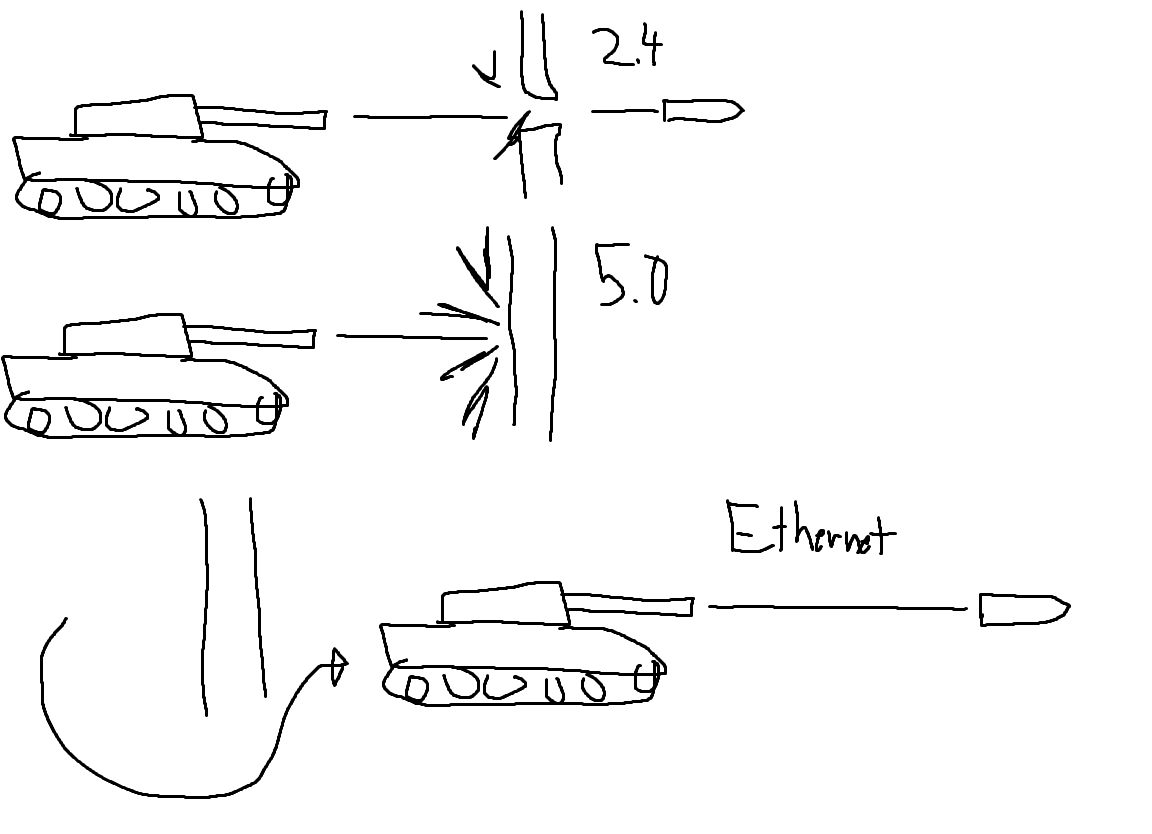 2.4
5.0
Ethernet